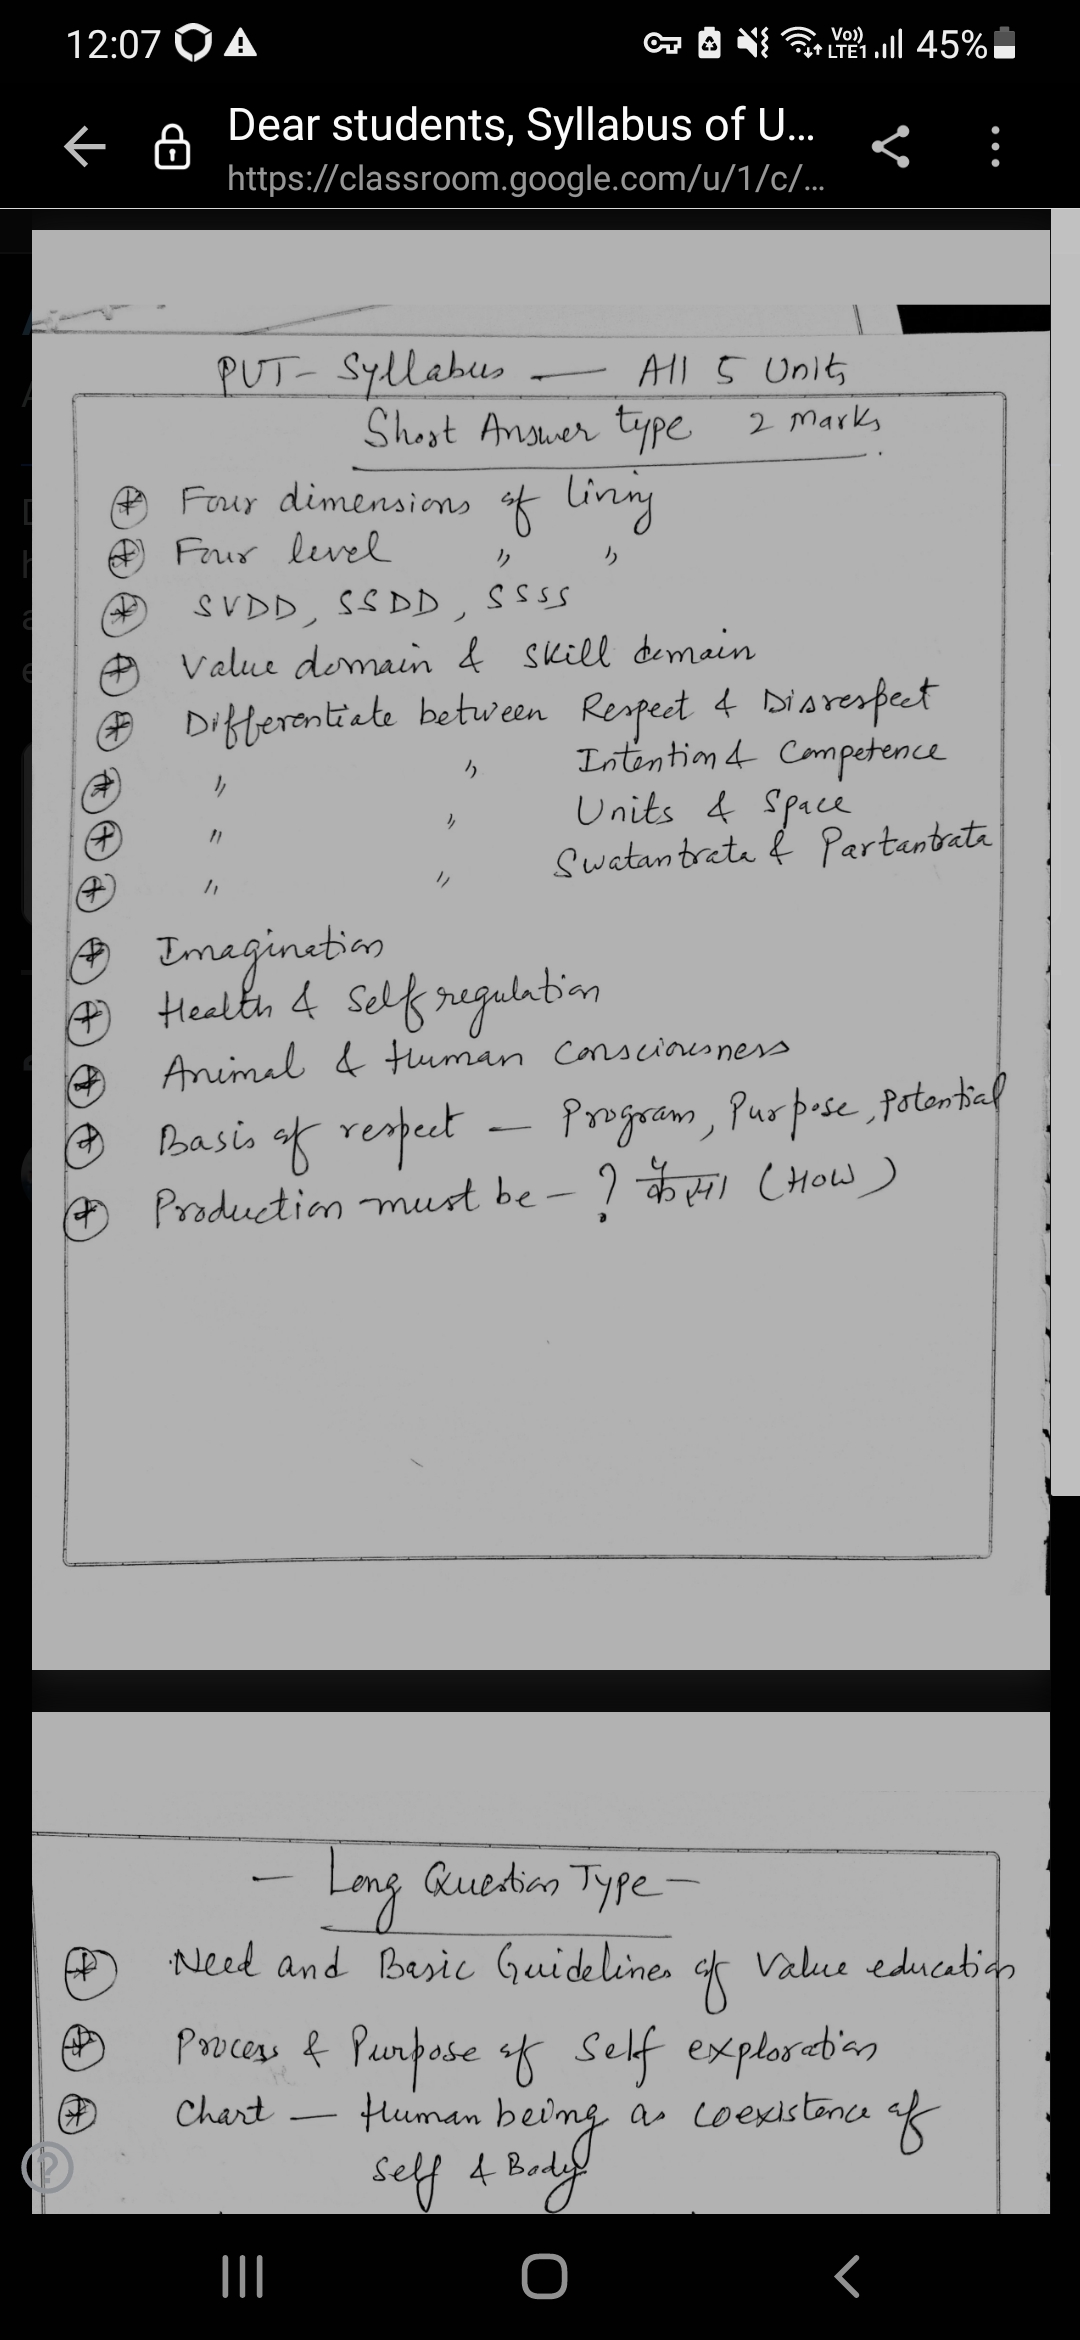 12:07 Vo)) LTE1 45%
Dear students, Syllabus of U...
https://classroom.google.com/u/1/c/...
PUT- Syllabus — All 5 Units
Short Answer type 2 Marks
Four dimensions of living
Four level " "
SVDD, SSDD, SSSS
Value domain & Skill domain
Differentiate between Respect & Disrespect
" " Intention & Competence
" " Units & Space
" " Swatantrata & Partantrata
Imagination
Health & Self regulation
Animal & Human Consciousness
Basis of respect — Program, Purpose, Potential
Production must be - ? कैसा (HOW)
- Long Question Type -
Need and Basic Guidelines of Value education
Process & Purpose of Self exploration
Chart — Human being as coexistence of
Self & Body